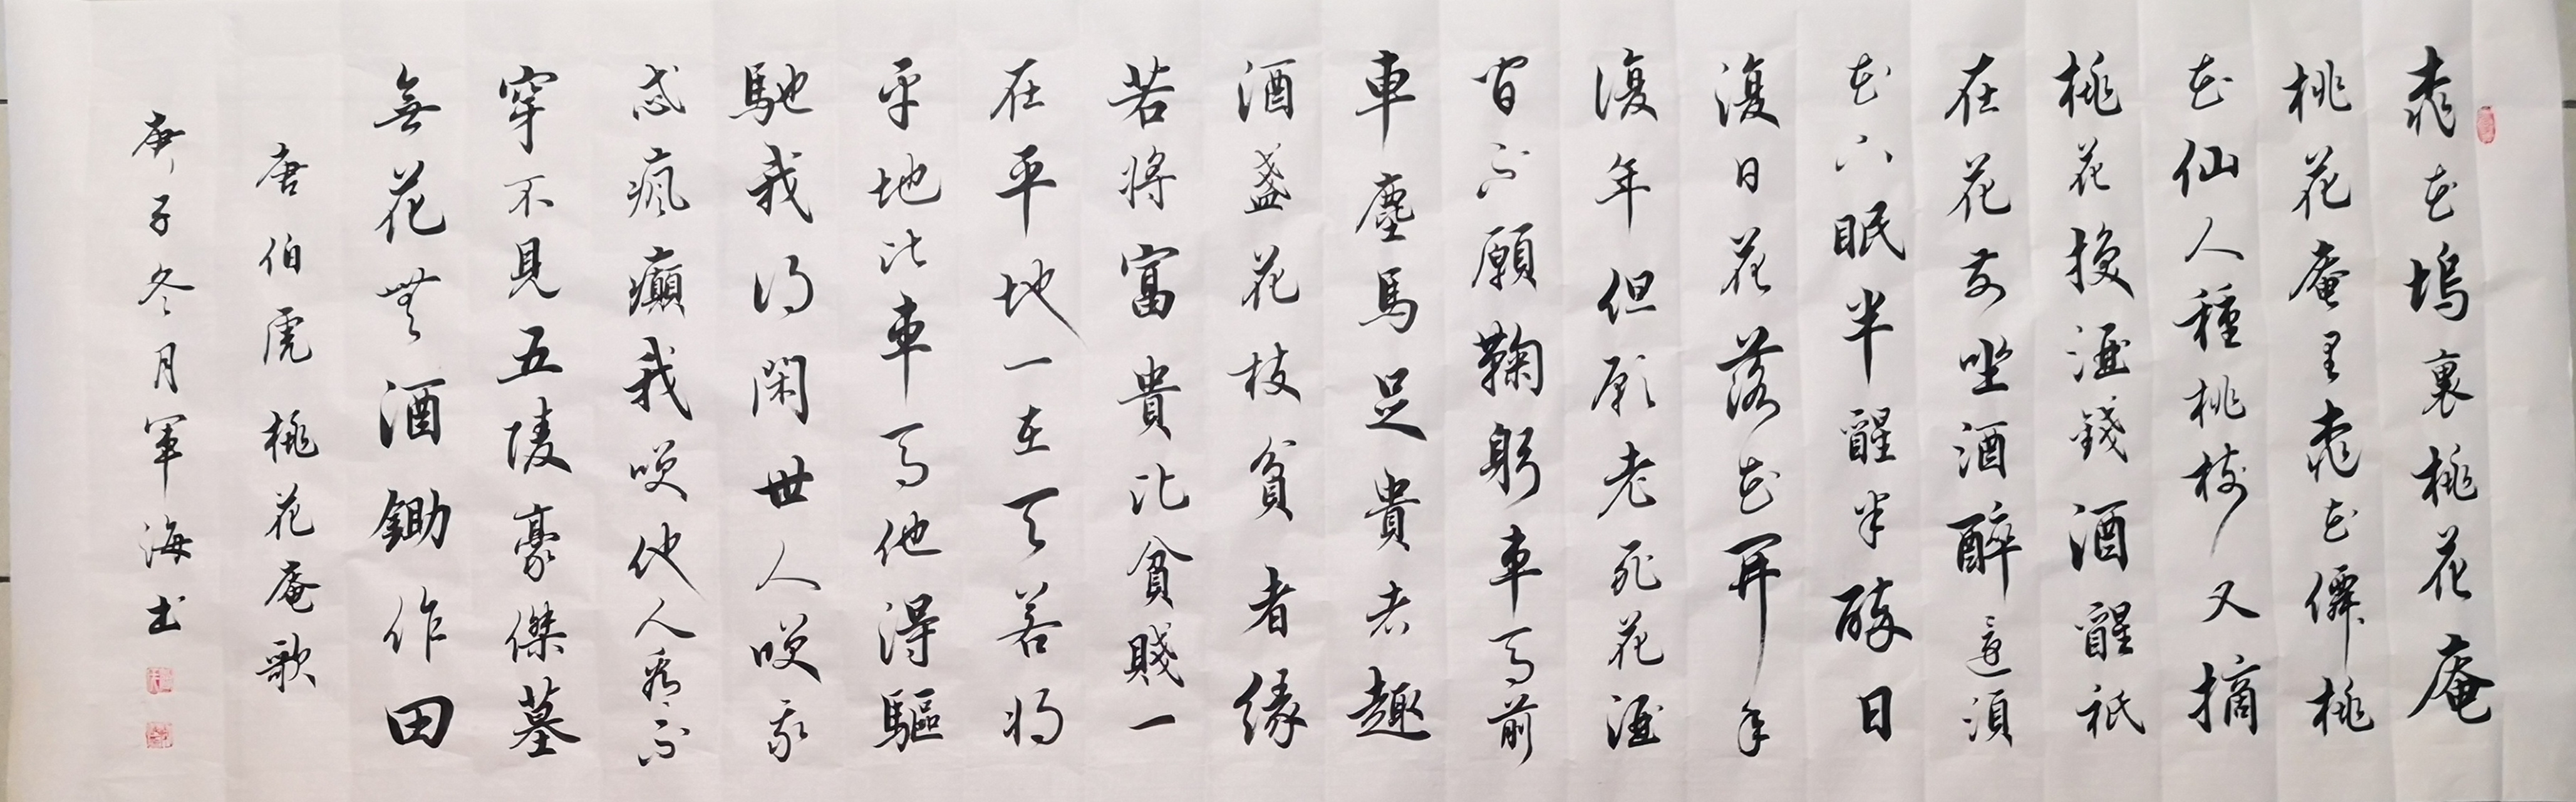 桃花塢裏桃花庵
桃花庵里桃花僊桃
花仙人種桃樹又摘
桃花換酒錢酒醒祇
在花前坐酒醉還須
花下眠半醒半醉日
復日花落花開年
復年但願老死花酒
間不願鞠躬車馬前
車塵馬足貴者趣
酒盞花枝貧者緣
若將富貴比貧賤一
在平地一在天若將
平地比車馬他得驅
馳我得閑世人咲我
忒瘋癲我咲他人看不
穿不見五陵豪傑墓
無花無酒鋤作田
唐伯虎桃花庵歌
庚子冬月軍海书